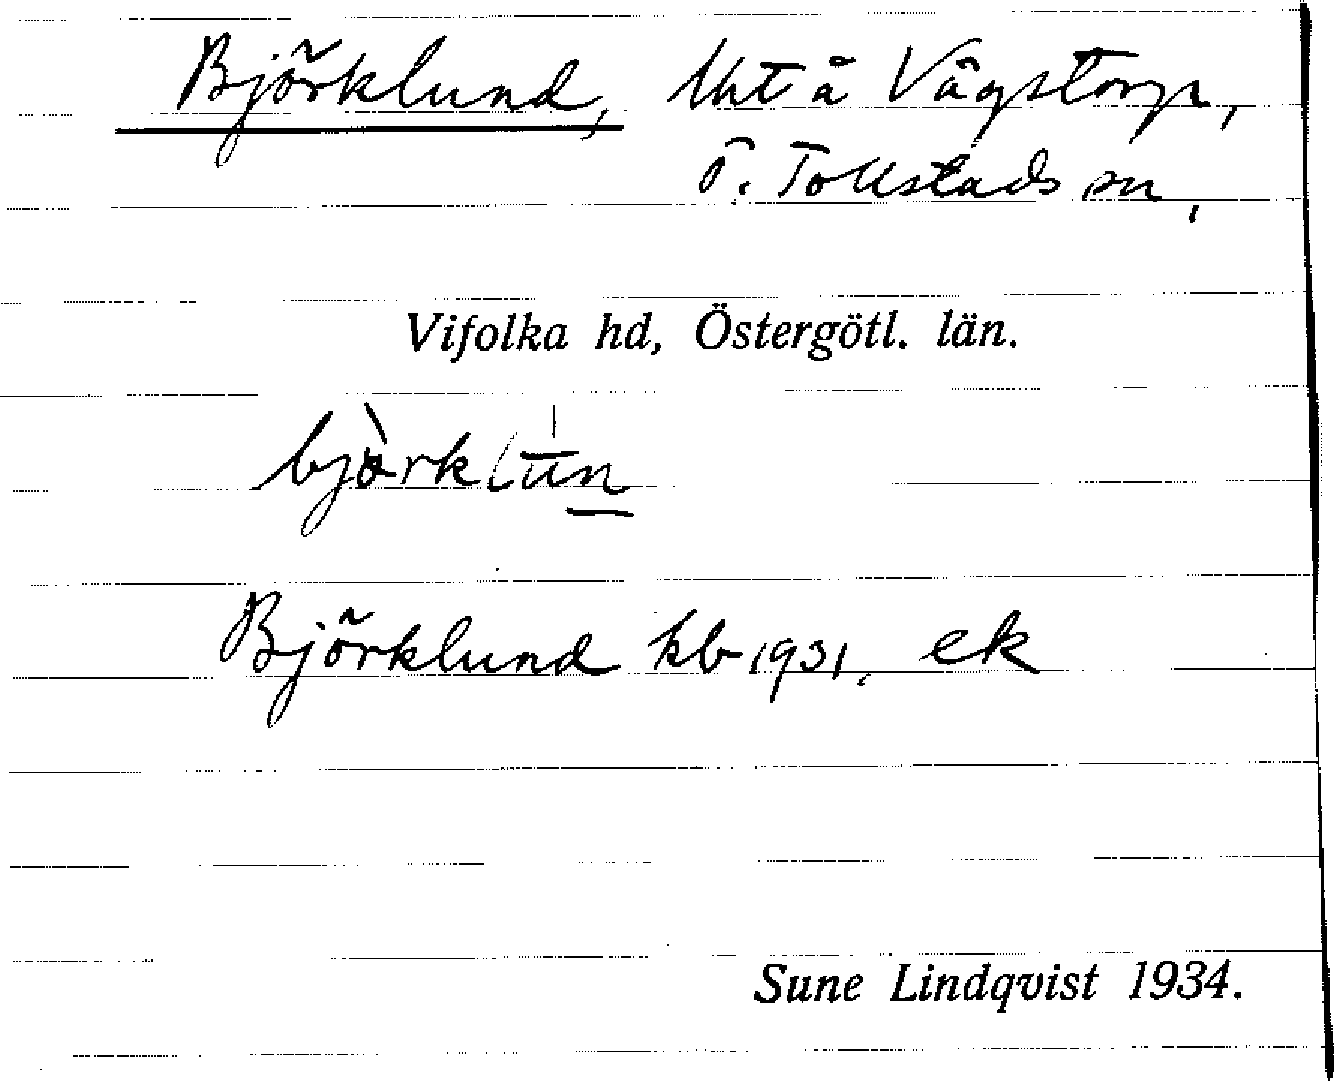 Björklund, lht å Vågstorp,
Ö. Tollstads sn,
Vifolka hd, Östergötl. län.
björklun
Björklund kb 1931, ek
Sune Lindqvist 1934.